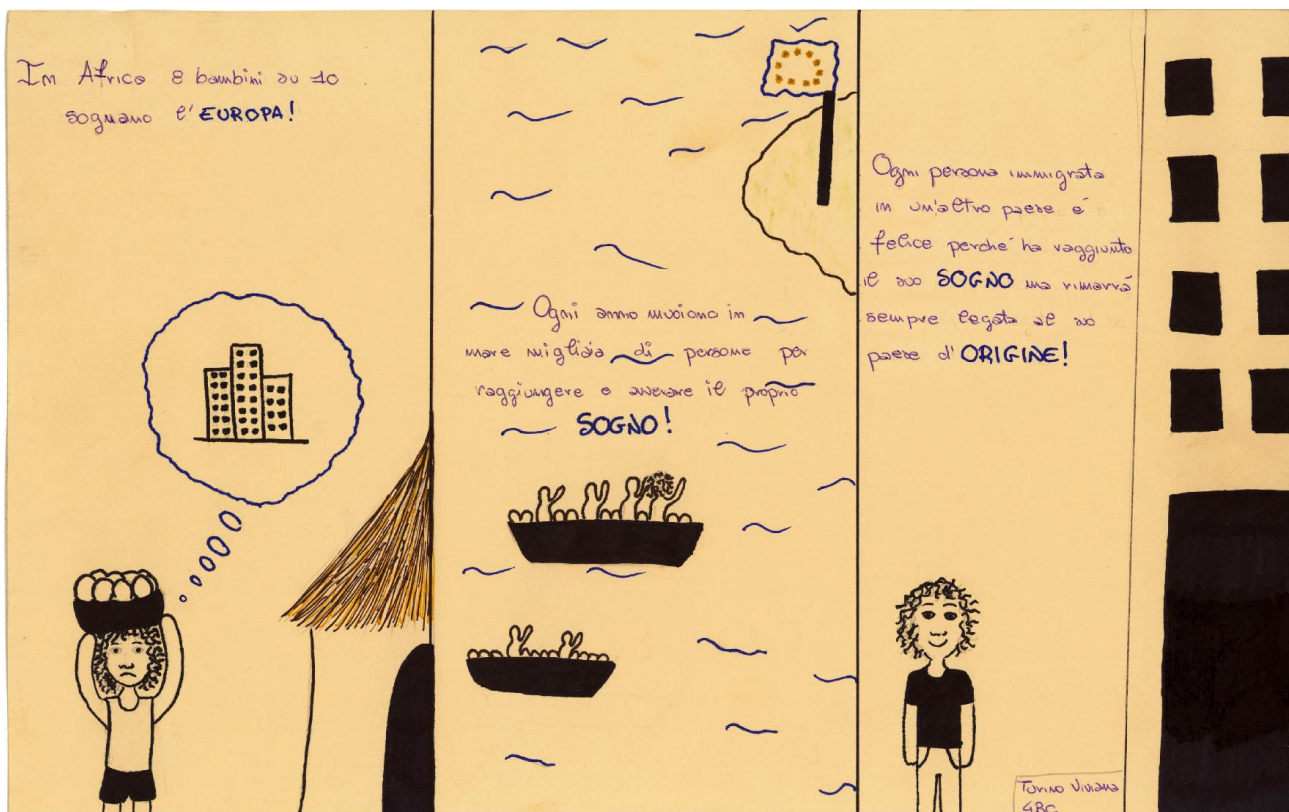 In Africa 8 bambini su 10
sognano l'EUROPA!
Ogni anno muoiono in
mare migliaia di persone per
raggiungere e avverare il proprio
SOGNO!
Ogni persona immigrata
in un'altro paese é
felice perché ha raggiunto
il suo SOGNO ma rimarrá
sempre legata al suo
paese d'ORIGINE!
Turino Viviana
4BC